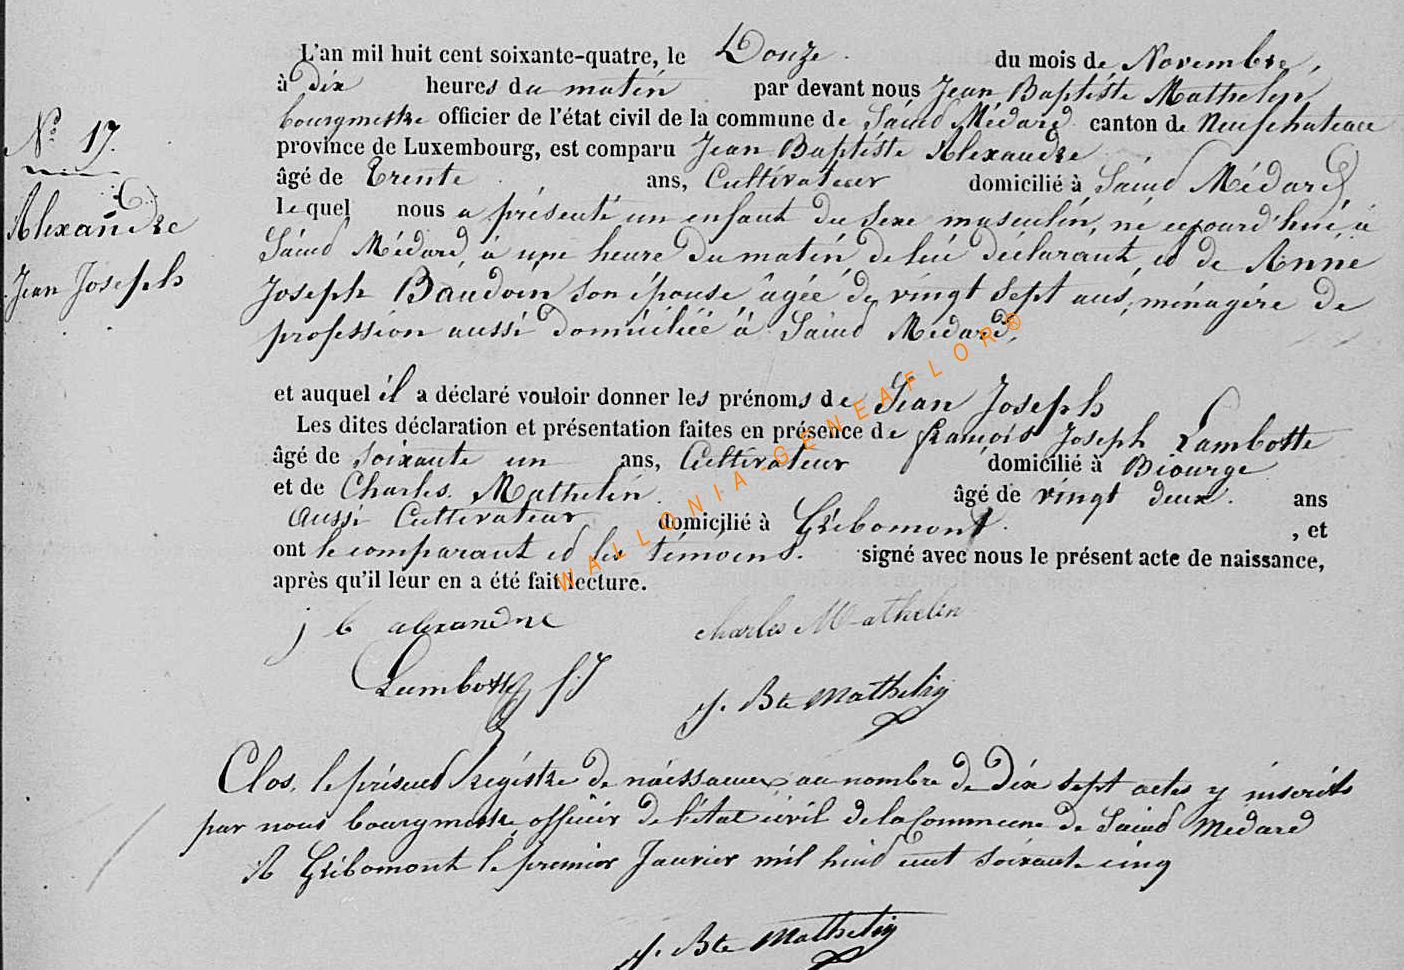 L'an mil huit cent soixante-quatre, le Douze du mois de Novembre,
à dix heures du matin par devant nous Jean Baptiste Mathelin
bourgmestre officier de l'état civil de la commune de Saind Médard canton de Neufchateau
province de Luxembourg, est comparu Jean Baptiste Alexandre
âgé de Trente ans, Cultivateur domicilié à Saind Médard
lequel nous a présenté un enfant du Sexe masculin, né aujourd'hui, à
Saind Médard, à une heure du matin, de lui déclarant, ed de Anne
Joseph Baudoin son épouse âgée de vingt Sept ans, ménagère de
profession aussi domiciliée à Saind Médard,
N° 17.
Alexandre
Jean Joseph
et auquel il a déclaré vouloir donner les prénoms de Jean Joseph
Les dites déclaration et présentation faites en présence de françois Joseph Lambotte
âgé de soixante un ans, Cultivateur domicilié à Biourge
et de Charles Mathelin. âgé de vingt deux. ans
aussi Cultivateur domicilié à Gribomont. , et
ont le comparant ed les témoins. signé avec nous le présent acte de naissance,
après qu'il leur en a été fait lecture.
WALLONIA-GENEAFLOR®
j b alexandre charles Mathelin
Lambotte f.J
J. Bte Mathelin
Clos, le présend registre de naissances au nombre de Dix sept actes y inscrits
par nous bourgmestre officier de l'état civil de la Commune de Saind Médard
A Gribomont le premier Janvier mil huid cent soixante cinq
J. Bte Mathelin